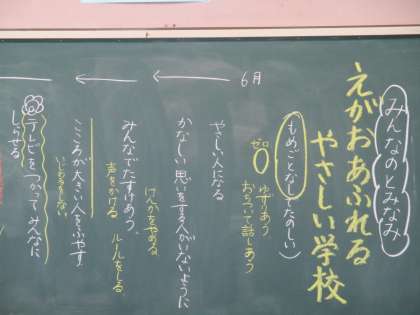 みんなのとみなみ
えがおあふれる
やさしい学校
6月
(もめごとなしでたのしい)
ゼロ
0
ゆずりあう
おちついて話しあう
やさしい人になる
かなしい思いをする人がいないように
けんかをやめる
みんなでたすけあう
声をかける ルールをしる
こころが大きい人をふやす
いじわるをしない
テレビをつかってみんなに
しらせる